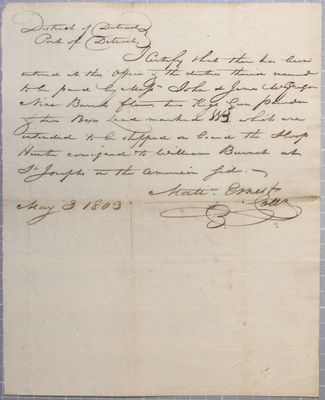 District of Detroit
Port of Detroit
I Certify that there has been
enterd at this Office & the duties thereon secured
to be paid by Mess<sup>rs</sup> John & James McGregor
Nine Barrels flour, two Kegs Gun powder
& three Boxes Lead marked WB which are
intended to be shipped on board the Sloop
Hunter consigned to William Burnet at
St Josephs on the American side.
Matt<sup>w</sup> Ernest
Coll<sup>r</sup>
May 3 1803